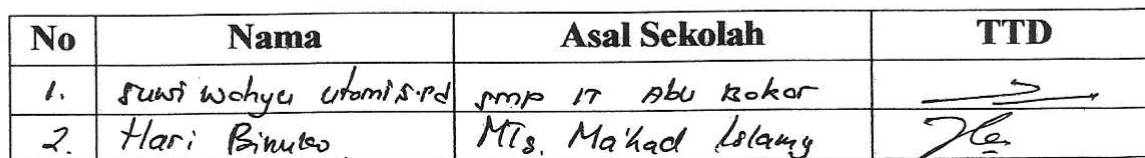 No Nama Asal Sekolah TTD
1. Suwi Wahyu Utami S.Pd SMP IT Abu Bakar
2. Hari Binuko MTs. Ma'had Islamy